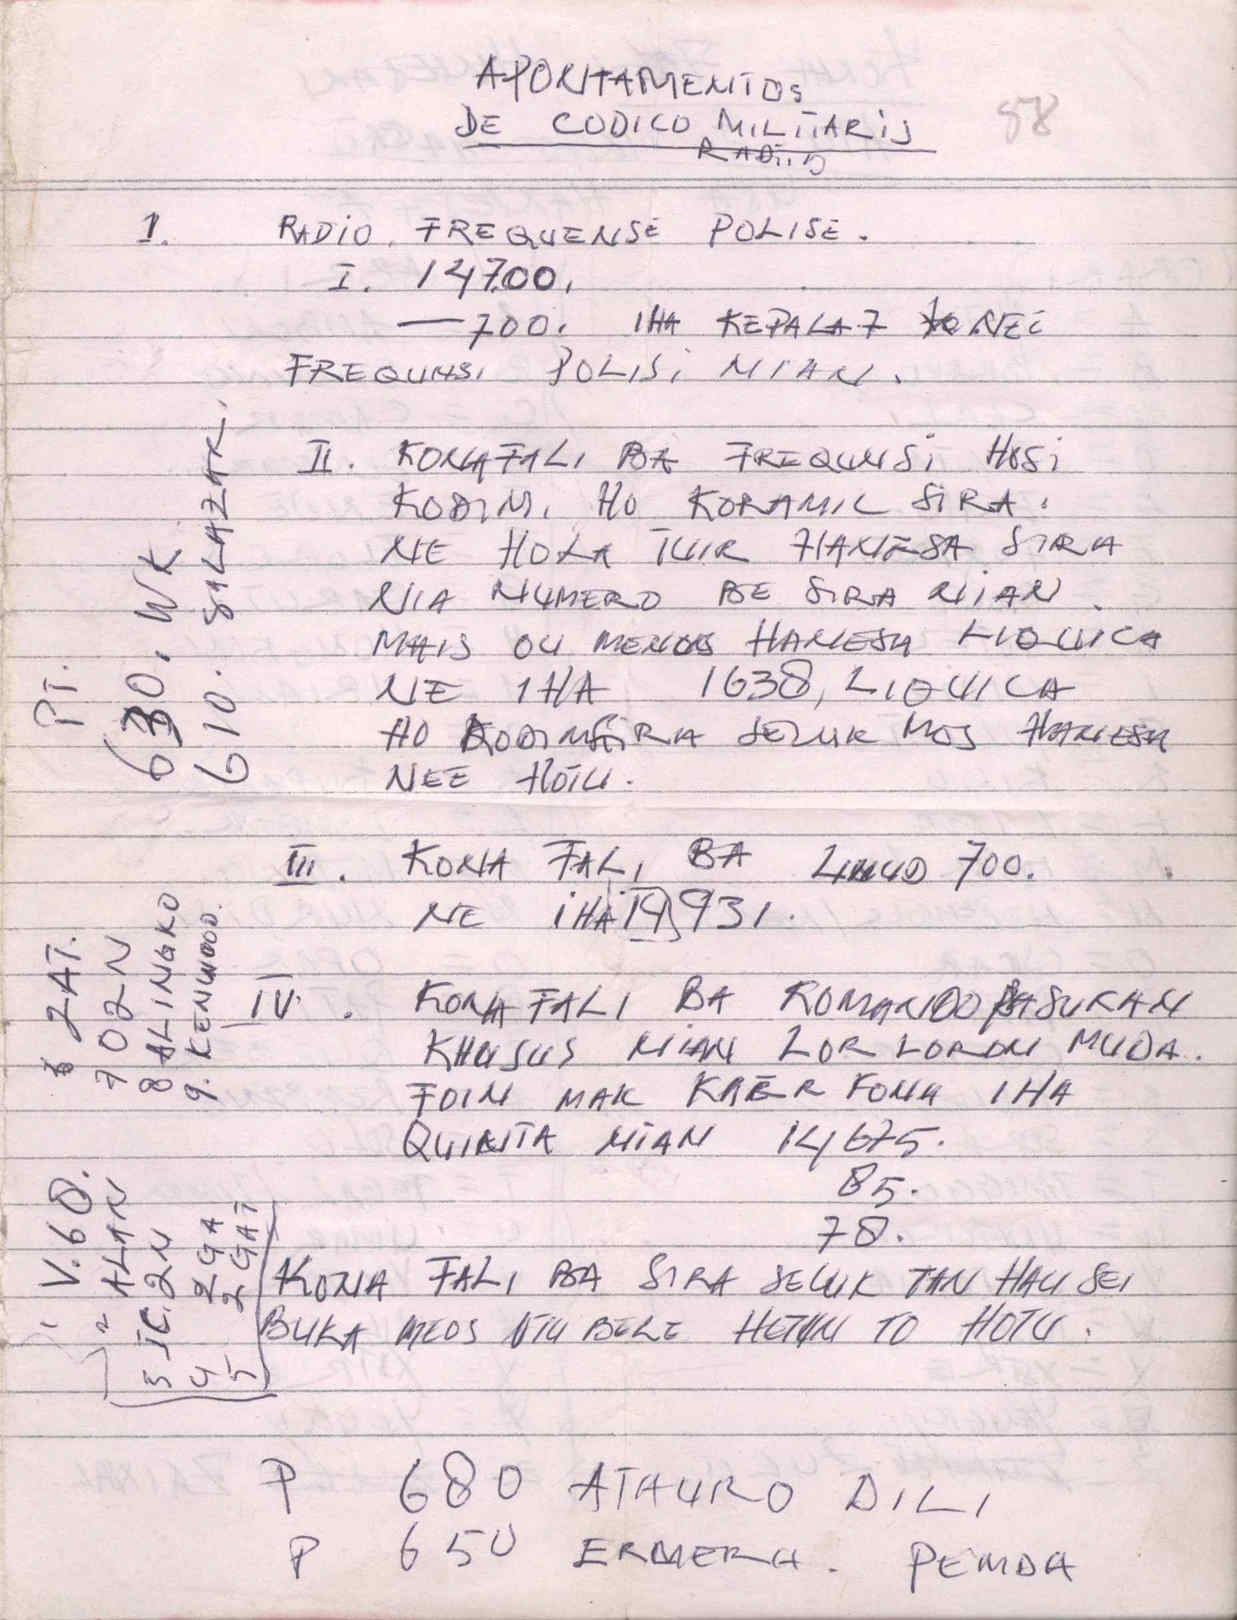 APONTAMENTOS
DE CODICO MILITARIS
RADiiS
88
1. RADIO FREQUENSE POLISE.
I. 14700.
—700. IHA KEPALA 7 NEE
FREQUNSI POLISI NIAN.
II. KONA FALI BA FREQUNSI HOSI
KODIM. HO KORAMIL SIRA.
NE HOLA TUIR HANESA SIRA
NIA NUMERO BE SIRA NIAN.
MAIS OU MENOS HANESA LIQUICA
NE IHA 1638, LIQUICA
HO KODIM SIRA SELUK MOS HANESA
NEE HOTU.
III. KONA FALI BA 700.
NE IHA 14,931.
IV. KONA FALI BA KOMANDO PASUKAN
KHUSUS NIAN LOR LORON MUDA.
FOIN MAK KAER FONA IHA
QUINTA NIAN 14675.
85.
78.
KONA FALI BA SIRA SELUK TAN HAU SEI
BUKA MEOS NIU BELE HETUN TO HOTU.
P 680 ATAURO DILI
P 650 ERMERA. PEMDA
PT.
630. WK
610. SALAZAR.
2AT.
7 02N
8 ALINGKO
9. KENWOOD.
1 V.60.
2 ALAN
3 IC.2N
4 2GA
5 2GAT